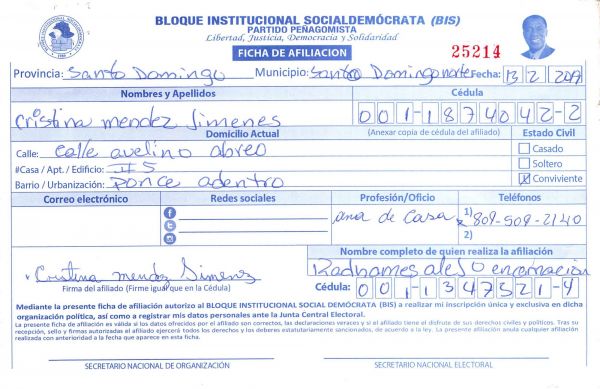 BLOQUE INSTITUCIONAL SOCIALDEMÓCRATA (BIS)
PARTIDO PEÑAGOMISTA
Libertad, Justicia, Democracia y Solidaridad
FICHA DE AFILIACION
25214
Provincia: Santo Domingo Municipio: Santo Domingo norte Fecha: 13 2 2019
Nombres y Apellidos Cédula
Cristina mendez Jimenes 001-1874042-2
Domicilio Actual (Anexar copia de cédula del afiliado) Estado Civil
Calle: calle avelino abreo Casado
#Casa / Apt. / Edificio: #5 Soltero
Barrio / Urbanización: ponce adentro Conviviente
Correo electrónico Redes sociales Profesión/Oficio Teléfonos
ama de Casa 1) 809-909-2140
2)
Nombre completo de quien realiza la afiliación
Cristina mendez Jimenez Radhames encarnación
Firma del afiliado (Firme igual que en la Cédula) Cédula: 001-1347521-4
Mediante la presente ficha de afiliación autorizo al BLOQUE INSTITUCIONAL SOCIAL DEMÓCRATA (BIS) a realizar mi inscripción única y exclusiva en dicha
organización política, así como a registrar mis datos personales ante la Junta Central Electoral.
La presente ficha de afiliación es válida si los datos ofrecidos por el afiliado son correctos, las declaraciones veraces y si el afiliado tiene el disfrute de sus derechos civiles y políticos. Tras su
recepción, sello y firmas autorizadas el afiliado ejercerá todos los derechos y los deberes estatutariamente sancionados, de acuerdo a la ley. La presente afiliación anula cualquier afiliación
realizada con anterioridad a la fecha que aparece en esta ficha.
SECRETARIO NACIONAL DE ORGANIZACIÓN SECRETARIO NACIONAL ELECTORAL